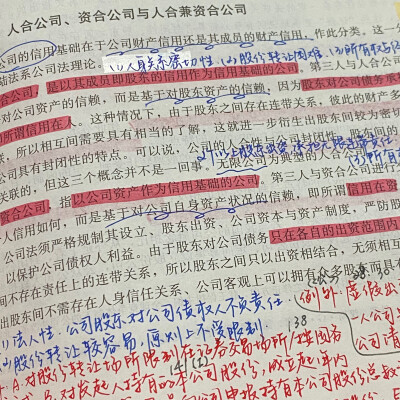 人合公司、资合公司与人合兼资合公司
公司的信用基础在于公司财产信用还是其成员的财产信用,作此分类。这一
法系公司法理论。(1)人身关系 (2)股份转让困难 (3)所有权与
合公司,是以其成员即股东的信用作为信用基础的公司。第三人与人合公司
对公司资产的信赖,而是基于对股东资产的信赖,因为股东对公司债务承
所谓信用在人。这种情况下,由于股东之间存在连带关系,彼此的财产多
联,所以相互间需要具有相当的了解,这就进一步衍生出股东间较为密
公司具有封闭性的特点。可以说,公司的人合性与公司封闭性
联的,但这三个概念并不是一回事。无限公司为典型的人合公司
资合公司,指以公司资产作为信用基础的公司。第三人与资合公司进行
信用如何,而是基于对公司自身资产状况的信赖,即所谓信用在资
公司法须严格规制其设立、股东出资、公司资本与资产制度,严防股
以保护公司债权人利益。由于股东对公司债务只在各自的出资范围内
间不存在责任上的连带关系,所以股东之间只以出资相结合,无须相互
出股东间不需存在人身信任关系、公司客观上可以拥有众多股东而具有
(1)法人性:公司股东对公司债权人不负责任 (例外:虚假出
(2)股份转让较容易,原则上不受限制 138
A.对股份转让场所限制:在证券交易场所/按国务
B.对发起人持有的本公司股份,成立起1年内
公司申报持有本公司股份总数